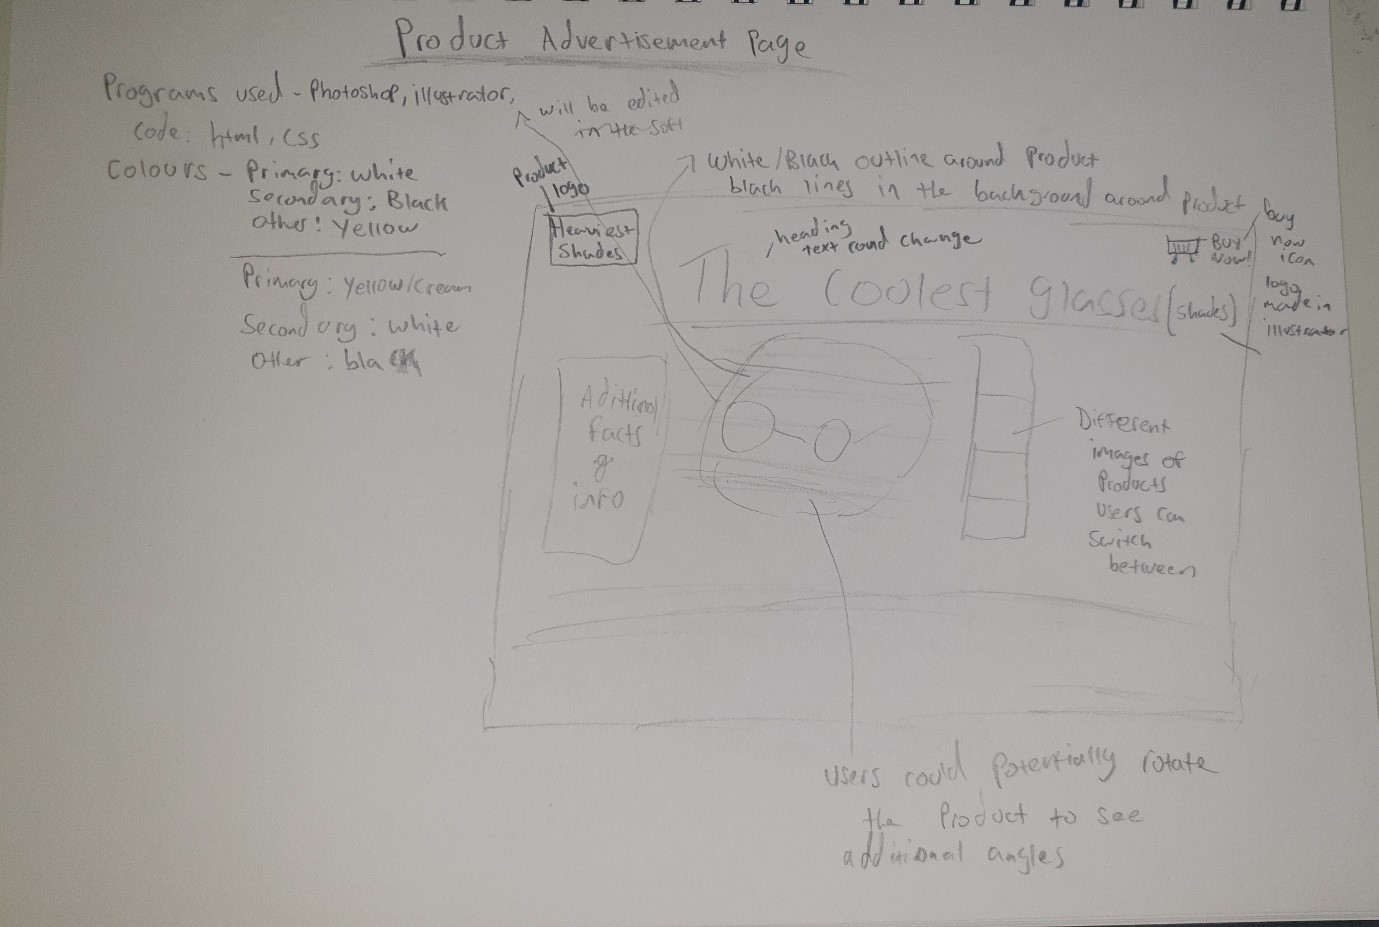 Product Advertisement Page
Programs used - Photoshop, illustrator,
Code: html, CSS
Colours - Primary: white
Secondary: Black
Other: Yellow
Primary: Yellow/Cream
Secondary: white
Other: black
will be edited
in the soft
Product
logo
Heaviest
Shades
White/Black outline around Product
black lines in the background around product
heading
text could change
The Coolest glasses (shades)
BUY
Now!
buy
now
icon
logo
made in
illustrator
Aditional
facts
&
info
Different
images of
Products
users can
switch
between
users could potentially rotate
the Product to see
additional angles